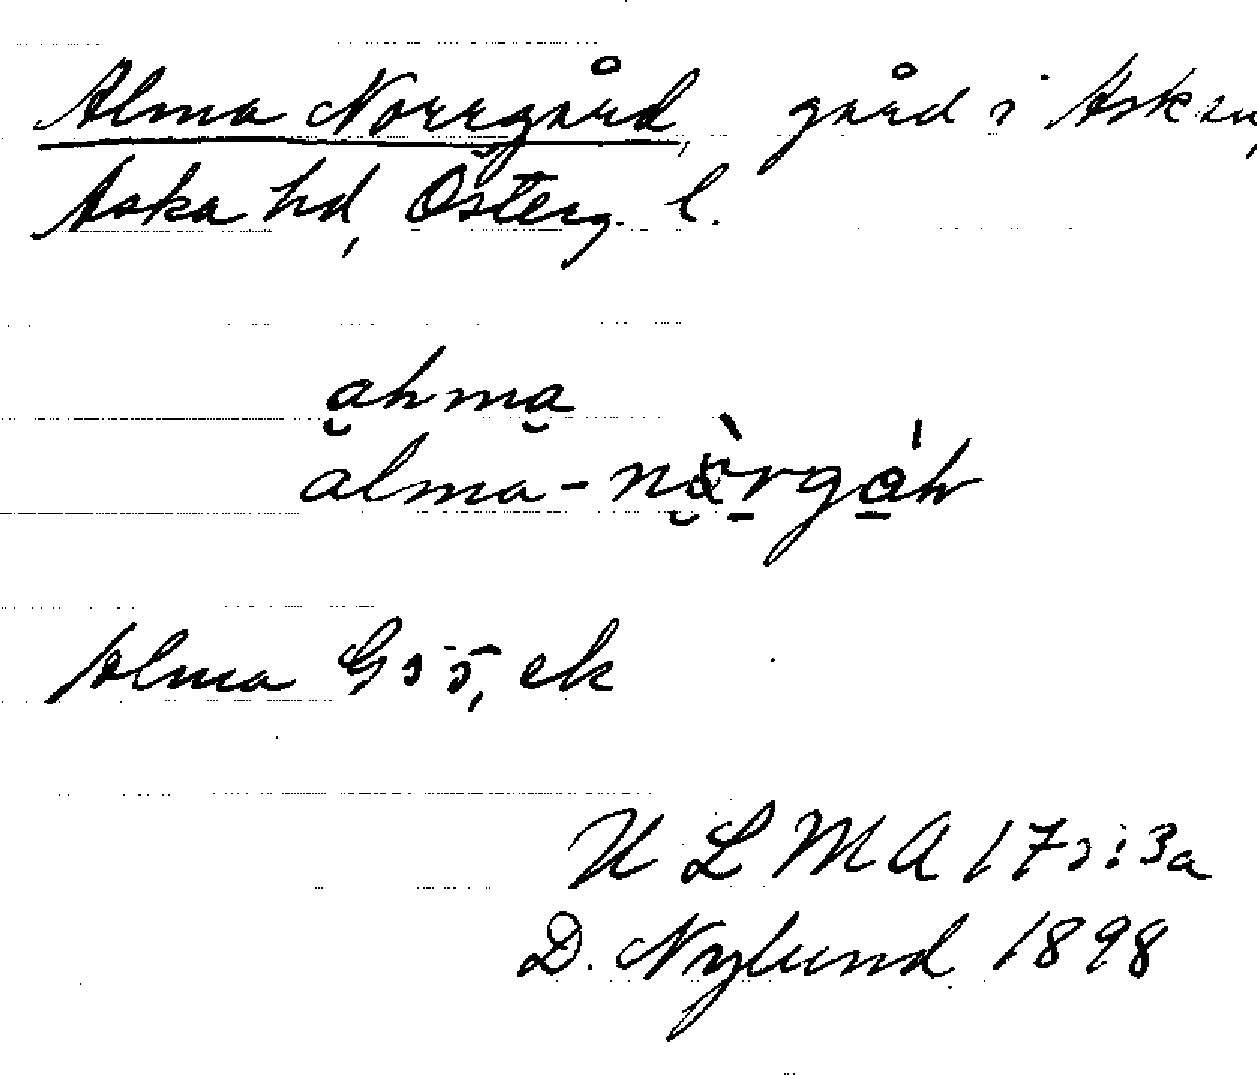 Alma Norrgård, gård i Asksn,
Aska hd, Österg. l.
ahma
alma-nòrgáh
Alma GsÖ, ek
ULMA 172:3a
D. Nylund 1898